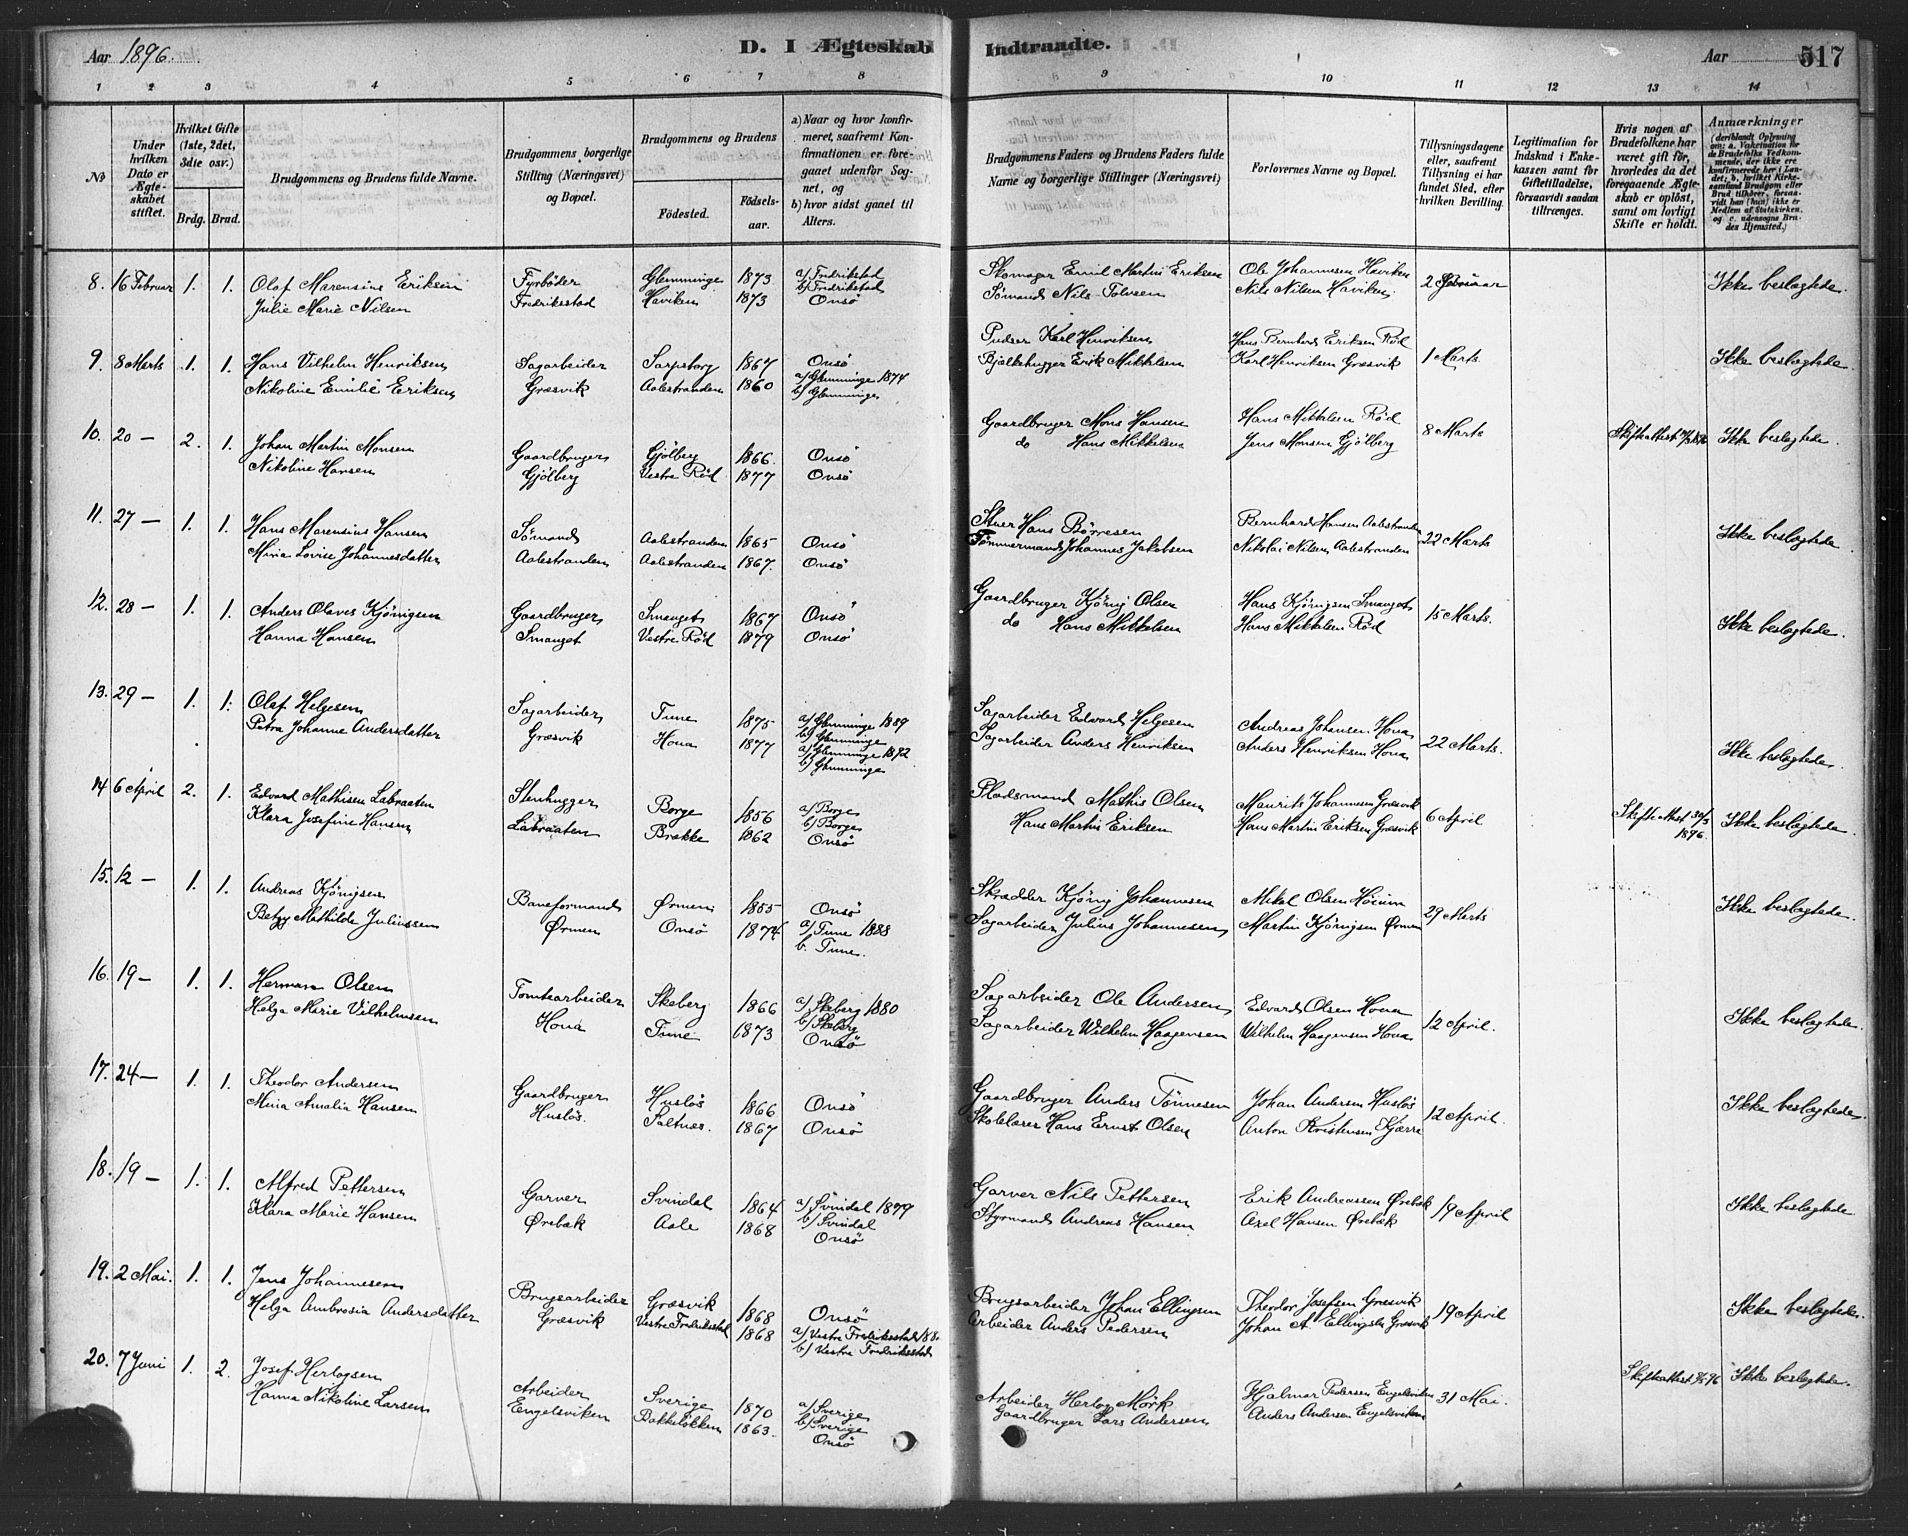 Aar 1896. D. I Ægteskab Indtraadte. Aar 517
1 2 3 4 5 6 7 8 9 10 11 12 13 14
No
Under hvilken Dato er Ægteskabet stiftet.
Hvilket Gifte (1ste, 2det, 3die osv.)
Brdg. Brud.
Brudgommens og Brudens fulde Navne.
Brudgommens borgerlige Stilling (Næringsvei) og Bopæl.
Brudgommens og Brudens
Fødested. Fødselsaar.
a) Naar og hvor konfirmeret, saafremt Konfirmationen er foregaaet udenfor Sognet, og
b) hvor sidst gaaet til Alters.
Brudgommens Faders og Brudens Faders fulde Navne og borgerlige Stillinger (Næringsvei)
Forlovernes Navne og Bopæl.
Tillysningsdagene eller, saafremt Tillysning ei har fundet Sted, efter hvilken Bevilling.
Legitimation for Indskud i Enkekassen samt for Giftetilladelse, forsaavidt saadan tiltrænges.
Hvis nogen af Brudefolkene har været gift før, hvorledes da det foregaaende Ægteskab er opløst, samt om lovligt Skifte er holdt.
Anmærkninger (deriblandt Oplysning om: a. Vakcination for de Brudefolks Vedkommende, der ikke ere konfirmerede her i Landet; b. hvilket Kirkesamfund Brudgom eller Brud tilhører, forsaavidt han (hun) ikke er Medlem af Statskirken, og c. udensogns Brudes Hjemsted.)
8. 16 Februar 1. 1. Olaf Marensius Eriksen Fyrbøder Glemminge 1873 a/ Fredrikstad b/ Fredrikstad Skomager Emil Martin Eriksen Ole Johannesen Haviken 2 Februar Ikke beslægtede.
Julie Marie Nilsen Fredriksstad Haviken 1873 Onsø Sømand Nils Tolvsen Nils Nilsen Haviken
9. 8 Marts 1. 1. Hans Vilhelm Henriksen Sagarbeider Sarpsborg 1867 Onsø Pudser Karl Henriksen Hans Bernhard Eriksen Rød 1 Marts Ikke beslægtede.
Nikoline Emilie Eriksen Græsvik Aalestranden 1860 a/ Glemminge 1874 b/ Glemminge Bjelkehugger Erik Mikkelsen Karl Henriksen Græsvik
10. 20 — 2. 1. Johan Martin Monsen Gaardbruger Gjølberg 1866. Onsø Gaardbruger Mons Hansen Hans Mikkelsen Rød 8 Marts Skifteattest Ikke beslægtede.
Nikoline Hansen Gjølberg Vestre Rød 1877 Onsø do Hans Mikkelsen Jens Monsen Gjølberg
11. 27 — 1. 1. Hans Marensius Hansen Sømand Aalestranden 1865 Onsø Hans Børresen Bernhard Hansen Aalestranden 22 Marts Ikke beslægtede.
Mina Lovise Johannesdatter Aalestranden Aalestranden 1867. Onsø Tømmermand Johannes Jakobsen Nikolai Nilsen Aalestranden
12. 28 — 1. 1. Anders Olaves Kjønigsen Gaardbruger Smauget 1867 Onsø Gaardbruger Kjønig Olsen Hans Kjønigsen Smauget 15 Marts. Ikke beslægtede.
Hanna Hansen Smauget Vestre Rød 1879 Onsø do Hans Mikkelsen Hans Mikkelsen Rød
13. 29 — 1. 1. Olaf Helgesen Sagarbeider Tune 1875 a/ Glemminge 1889 b/ Glemminge Sagarbeider Edvard Helgesen Andreas Johansen Houa 22 Marts. Ikke beslægtede.
Petra Johanne Andersdatter Græsvik Houa 1877 a/ Glemminge 1892 b/ Glemminge Sagarbeider Anders Henriksen Anders Henriksen Houa
14 6 April 2. 1. Edvard Mathisen Labraaten Stenhugger Borge 1856 a/ Borge b/ Borge Pladsmand Mathis Olsen Maurits Johannesen Græsvik 6 April Skifteattest 30/3 1896. Ikke beslægtede.
Klara Josefine Hansen Labraaten Brække 1862 Onsø Hans Martin Eriksen Hans Martin Eriksen Græsvik
15. 12 — 1. 1. Andreas Kjønigsen Baneformand Ørmen 1855 Onsø Skrædder Kjønig Johannesen Mikal Olsen 29 Marts Ikke beslægtede.
Betzy Mathilde Juliussen Ørmen Onsø 1874 a/ Tune 1888 b. Tune. Sagarbeider Julius Johannesen Martin Kjønigsen Ørmen
16. 19 — 1. 1. Herman Olsen Tomtearbeider Skeberg 1866 a/ Skeberg 1880 b/ Skeberg Sagarbeider Ole Andersen Edvard Olsen Houa 12 April. Ikke beslægtede.
Helga Marie Vilhelmsen Houa Tune 1873 Onsø Sagarbeider Wilhelm Haagensen Wilhelm Haagensen Houa
17. 24 — 1. 1. Theodor Andersen Gaardbruger Husløs 1866 Onsø Gaardbruger Anders Tønnesen Johan Andersen Husløs 12 April. Ikke beslægtede.
Mina Amalia Hansen Husløs. Saltnæs. 1867 Onsø Skolelærer Hans Ernst Olsen Anton Kristensen Kjærre
18. 19 — 1. 1. Alfred Pettersen Garver Svindal 1864 a/ Svindal 1879 b/ Svindal Garver Nils Pettersen Erik Andreassen Ørebæk 19 April Ikke beslægtede
Klara Marie Hansen Ørebæk Aale 1868 Onsø Styrmand Andreas Hansen Axel Hansen Ørebæk
19. 2 Mai. 1. 1. Jens Johannesen Brugsarbeider Græsvik 1868 Onsø Brugsarbeider Johan Ellingsen Theodor Josefsen Græsvik 19 April Ikke beslægtede.
Helga Ambrosia Andersdatter Græsvik Vestre Fredriksstad 1868 a/ Vestre Fredriksstad b/ Vestre Fredriksstad Arbeider Anders Pedersen Johan A. Ellingsen Græsvik
20. 7 Juni 1. 2. Josef Herlogsen Arbeider Sverige 1870 a/ Sverige b/ Sverige Arbeider Herlog Mörk Hjalmar Pedersen Engelsviken 31 Mai. Skifteattest Ikke beslægtede.
Hanna Nikoline Larsen Eengelsviken Bakkeløkken 1863. Onsø Gaardbruger Lars Andersen Anders Andersen Engelsviken